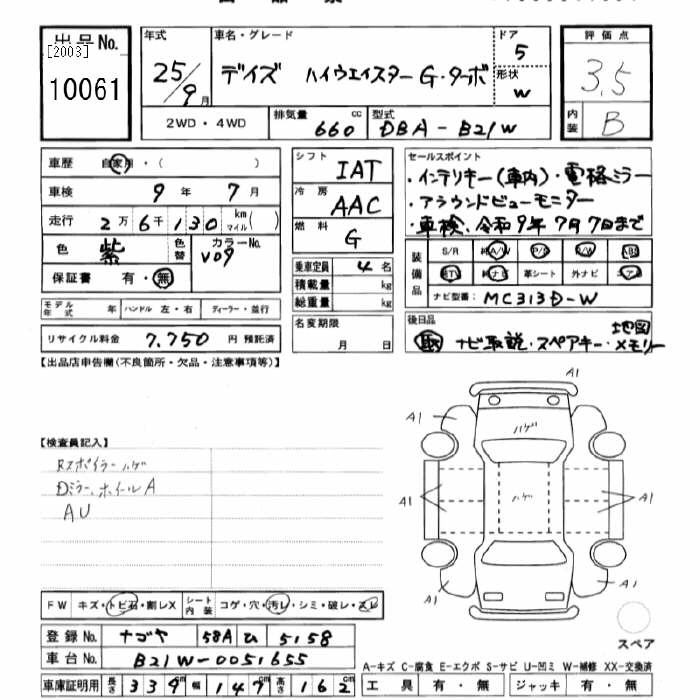 出品No.
[2003]
10061
年式
25/9月
車名・グレード
デイズ ハイウェイスター G・ターボ
ドア
5
形状
W
2WD・4WD
排気量
660 cc
型式
DBA-B21W
評価点
3.5
内装
B
車歴 自家用・( )
車検 9年 7月
走行 2万6千130 km マイル( )
色 紫 色替 カラーNo. V09
保証書 有・無
モデル年式 年 ハンドル 左・右 ディーラー・並行
リサイクル料金 7,750 円 預託済
シフト IAT
冷房 AAC
燃料 G
乗車定員 4 名
積載量 kg
総重量 kg
名変期限
月 日
セールスポイント
・インテリキー(車内)・電格ミラー
・アラウンドビューモニター
・車検、令和9年7月7日まで
装備品
S/R 純A/W P/S P/W ABS
純TV 純ナビ 革シート 外ナビ エアB
ナビ型番: MC313D-W
後日品
取 ナビ取説・スペアキー・地図メモリー
【出品店申告欄(不良箇所・欠品・注意事項等)】
【検査員記入】
Rスポイラーハゲ
Dミラー、ホイールA
AU
A1
A1
A1
ハゲ
A1
ハゲ
A1
A1
A1
スペア
FW キズ・トビ石・割レX シート内装 コゲ・穴・汚レ・シミ・破レ・スレ
登録No. ナゴヤ 58A ひ 5158
車台No. B21W-0051655
車庫証明用 長さ 339cm 幅 147cm 高さ 162cm
A-キズ C-腐食 E-エクボ S-サビ U-凹ミ W-補修 XX-交換済
工具 有・無 ジャッキ 有・無